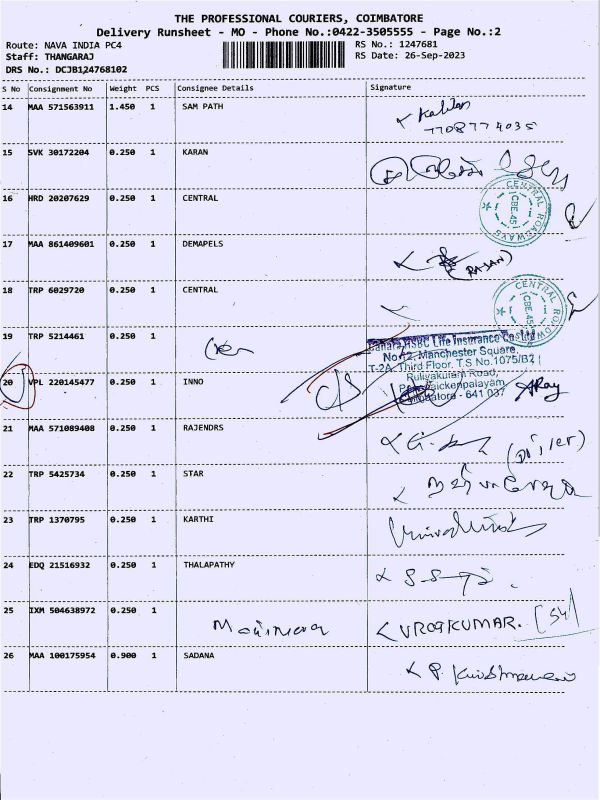 THE PROFESSIONAL COURIERS, COIMBATORE
Delivery Runsheet - MO - Phone No.:0422-3505555 - Page No.:2
Route: NAVA INDIA PC4 RS No.: 1247681
Staff: THANGARAJ RS Date: 26-Sep-2023
DRS No.: DCJB124768102
S No Consignment No Weight PCS Consignee Details Signature
14 MAA 571563911 1.450 1 SAM PATH
7708774035
15 SVK 30172204 0.250 1 KARAN
16 HRD 20207629 0.250 1 CENTRAL
CENTRAL ROADWAYS
CBE-45
17 MAA 861409601 0.250 1 DEMAPELS
(RAJAN)
18 TRP 6029720 0.250 1 CENTRAL
CENTRAL ROADWAYS
CBE-45
19 TRP 5214461 0.250 1
HSBC Life Insurance
No.12, Manchester Square,
T-2A, Third Floor, T.S No.1075/B2
Puliyakulam Road,
641 037
20 VPL 220145477 0.250 1 INNO
21 MAA 571089408 0.250 1 RAJENDRS
22 TRP 5425734 0.250 1 STAR
23 TRP 1370795 0.250 1 KARTHI
24 EDQ 21516932 0.250 1 THALAPATHY
25 IXM 504638972 0.250 1
26 MAA 100175954 0.900 1 SADANA